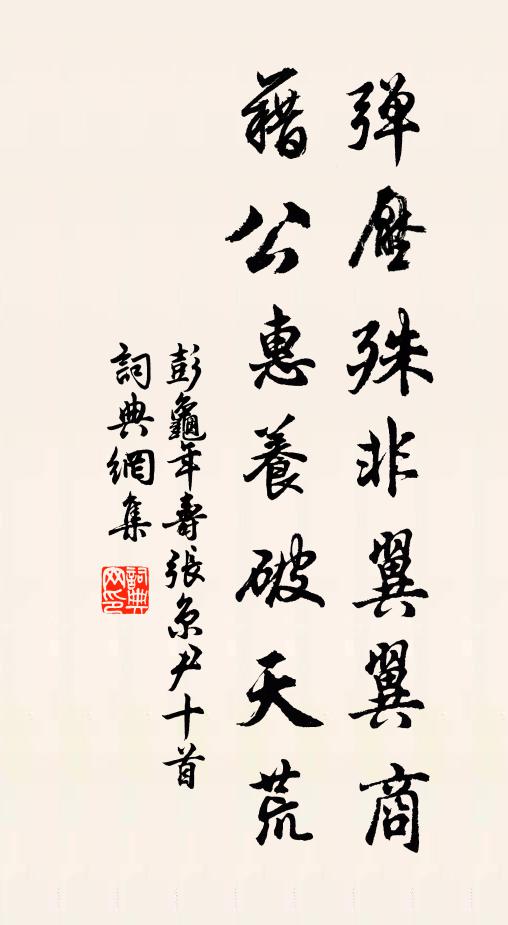 弹壓殊非翼翼商
藉公惠養破天荒
彭龜年壽張京尹十首
詞典網集
詞典網印